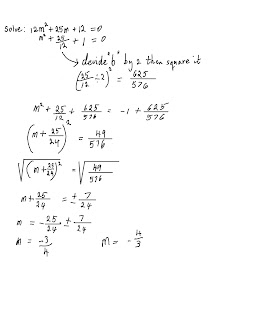 Solve: 12m² + 25m + 12 = 0
m² + 25/12 + 1 = 0
→ devide "b" by 2 then square it
(25/12 ÷ 2)² = 625/576
m² + 25/12 + 625/576 = -1 + 625/576
(m + 25/24)² = 49/576
√(m + 25/24)² = √49/576
m + 25/24 = ± 7/24
m = -25/24 ± 7/24
m = -3/4 m = -4/3